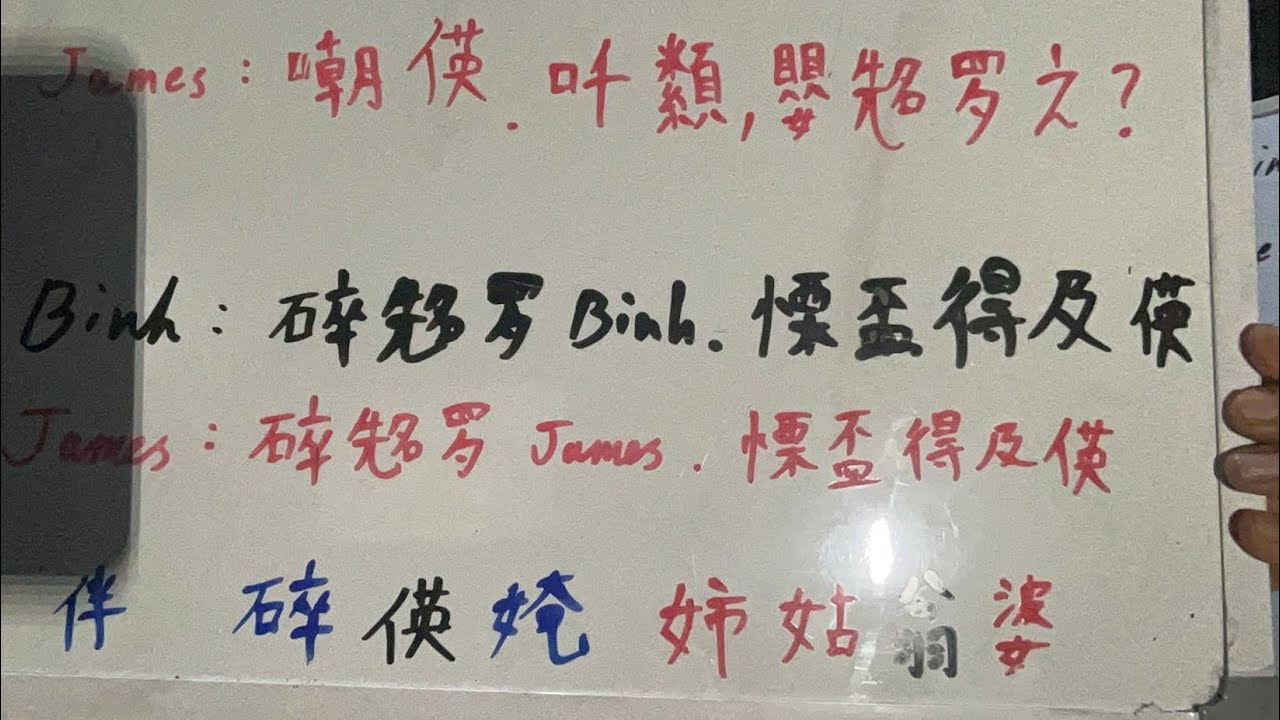 James : 嘲偀. 吀纇, 嬰𠸜罗之?
Binh : 碎𠸜罗 Binh. 慄盃得及偀
James : 碎𠸜罗 James. 慄盃得及偀
伴 碎 偀 㛪 姉 姑 翁 婆